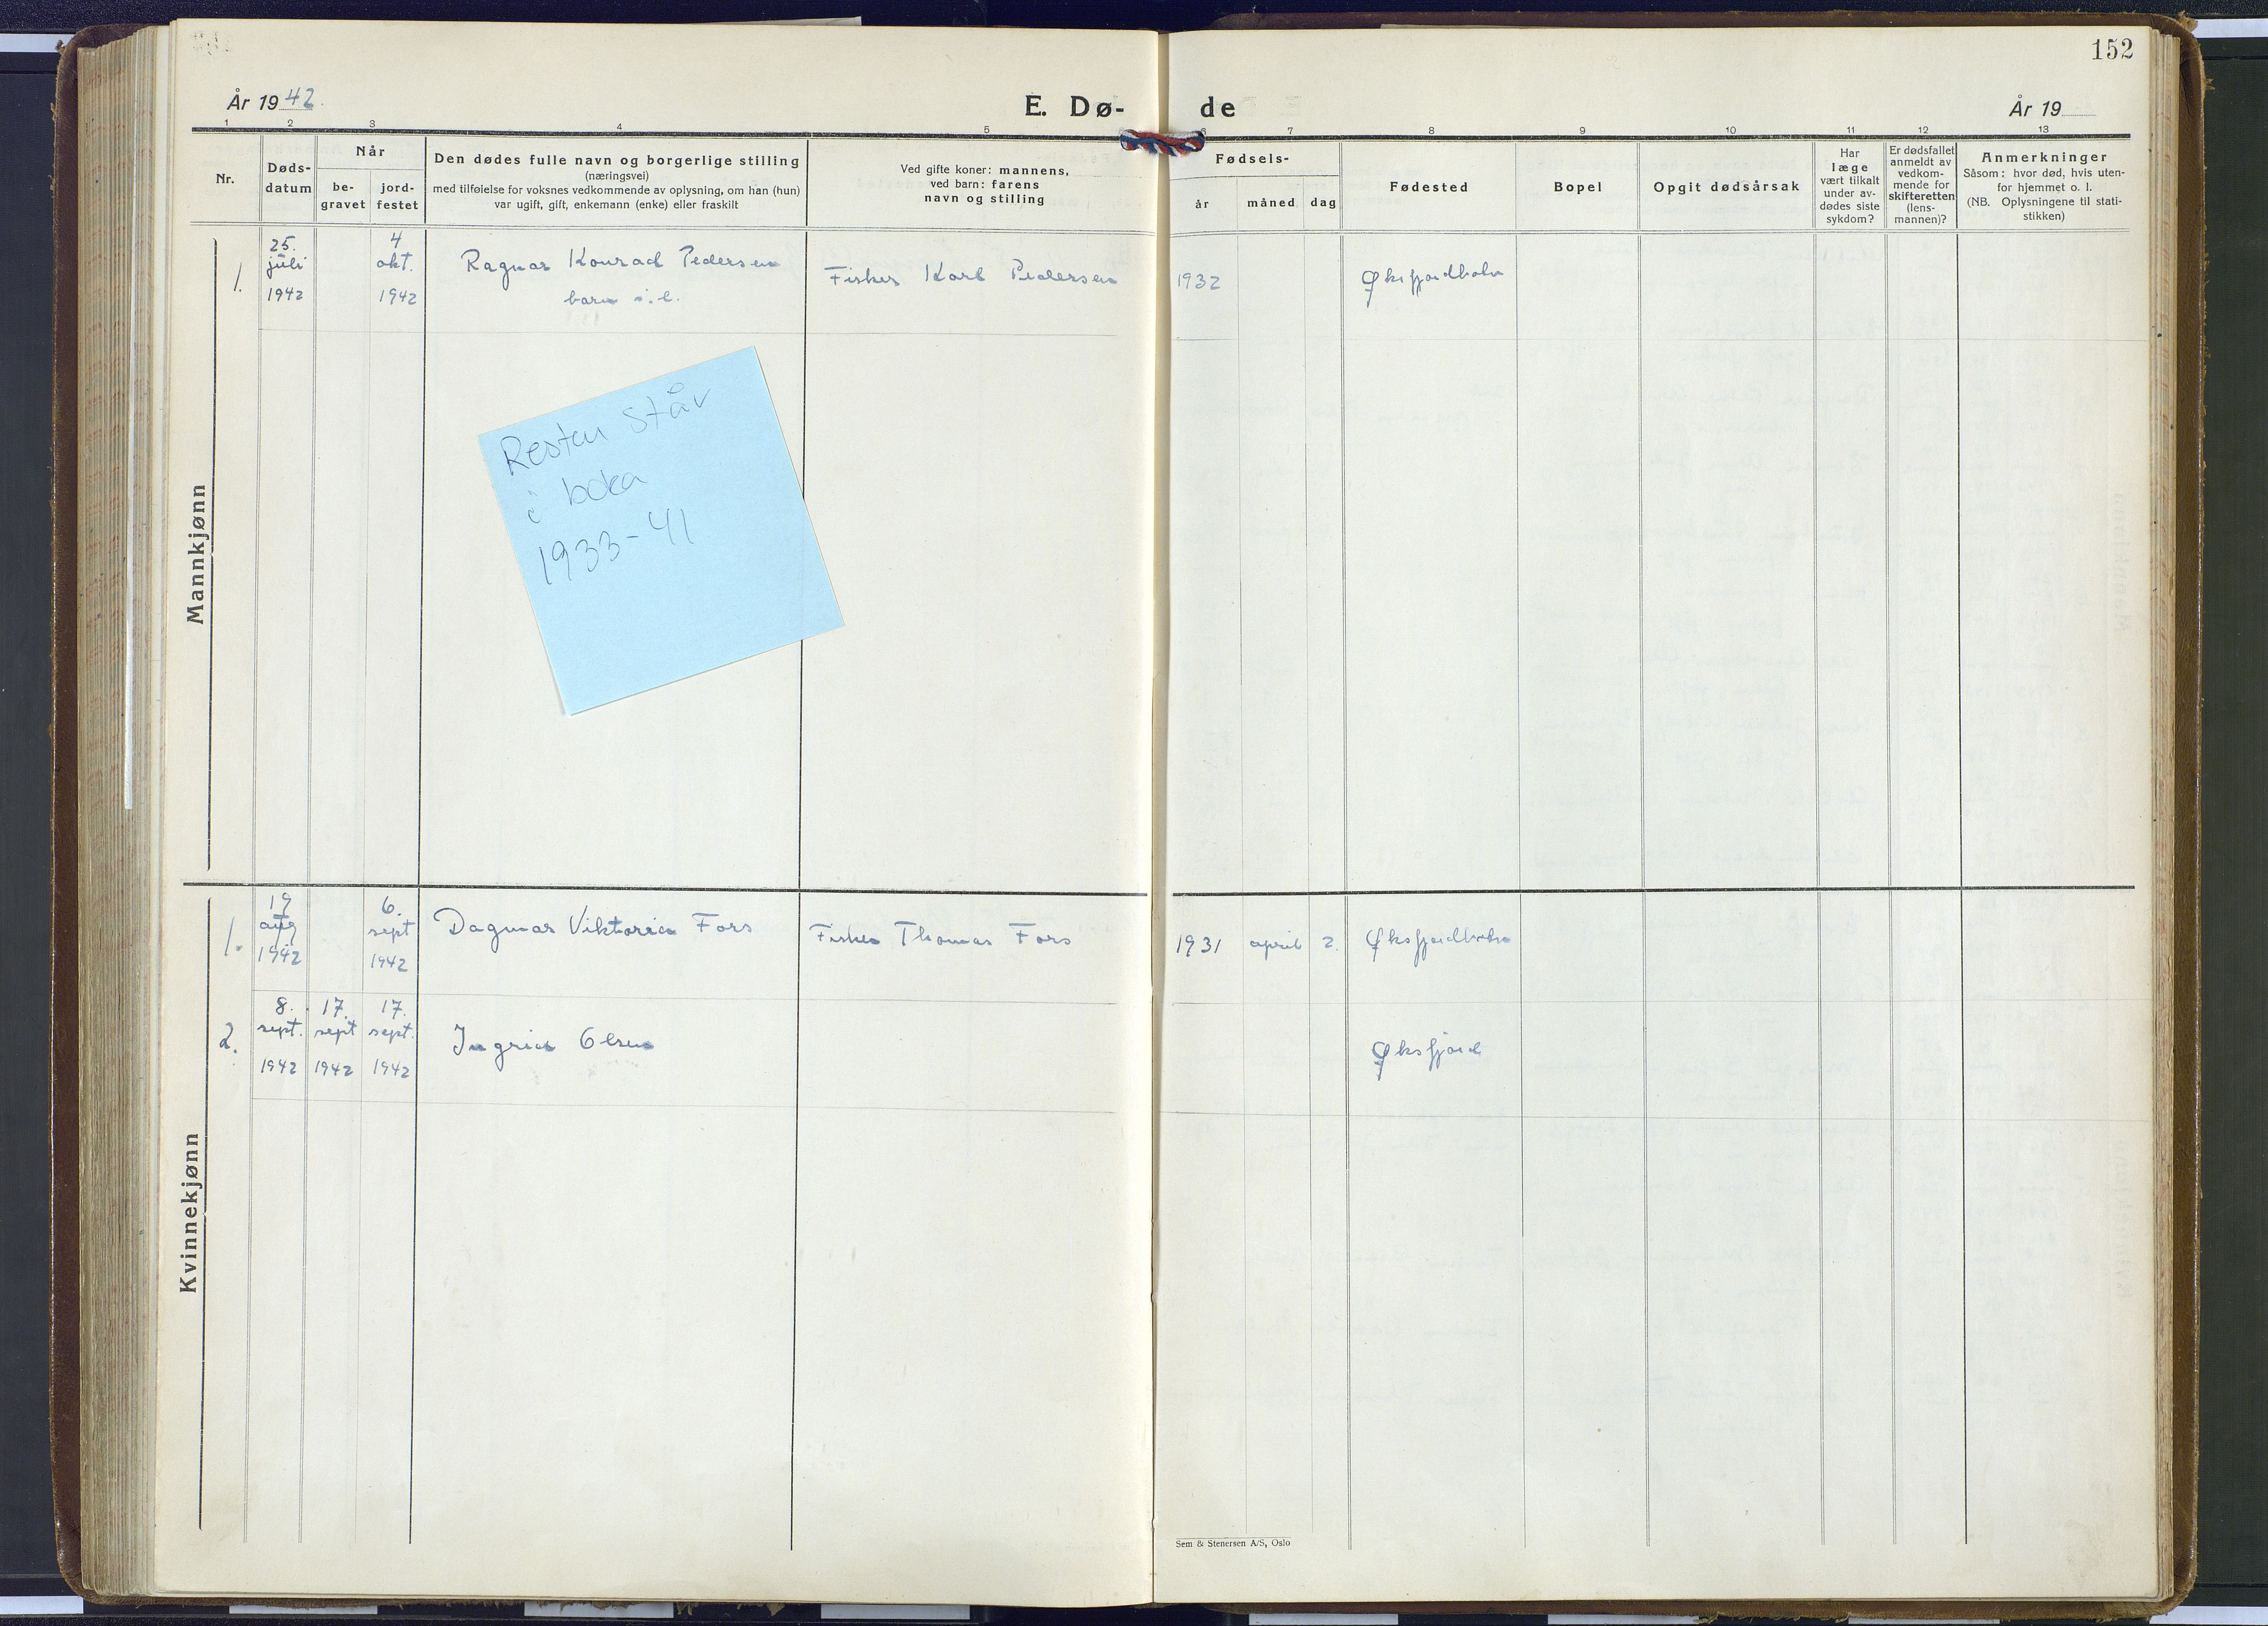 152
År 1942.
E. Dø-
de
År 19
1 2 3 4 5 6 7 8 9 10 11 12 13
Nr.
Døds-
datum
Når
be-
gravet
jord-
festet
Den dødes fulle navn og borgerlige stilling
(næringsvei)
med tilføielse for voksnes vedkommende av oplysning, om han (hun)
var ugift, gift, enkemann (enke) eller fraskilt
Ved gifte koner: mannens,
ved barn: farens
navn og stilling
Fødsels-
år
måned
dag
Fødested
Bopel
Opgit dødsårsak
Har
læge
vært tilkalt
under av-
dødes siste
sykdom?
Er dødsfallet
anmeldt av
vedkom-
mende for
skifteretten
(lens-
mannen)?
Anmerkninger
Såsom: hvor død, hvis uten-
for hjemmet o. l.
(NB. Oplysningene til stati-
stikken)
Mannkjønn
1.
25.
juli
1942
4
okt.
1942
Ragnar Konrad Pedersen
barn
Fisker Karl Pedersen
1932
Øksfjordbotn
Resten står
i boka
1933-41
Kvinnekjønn
1.
19
aug
1942
6.
sept
1942
Dagmar Viktoria Fors
Fisker Thomas Fors
1931 april 2.
Øksfjordbotn
2.
8.
sept.
1942
17.
sept
1942
17.
sept.
1942
Ingrid Olsen
Øksfjord
Sem & Stenersen A/S, Oslo